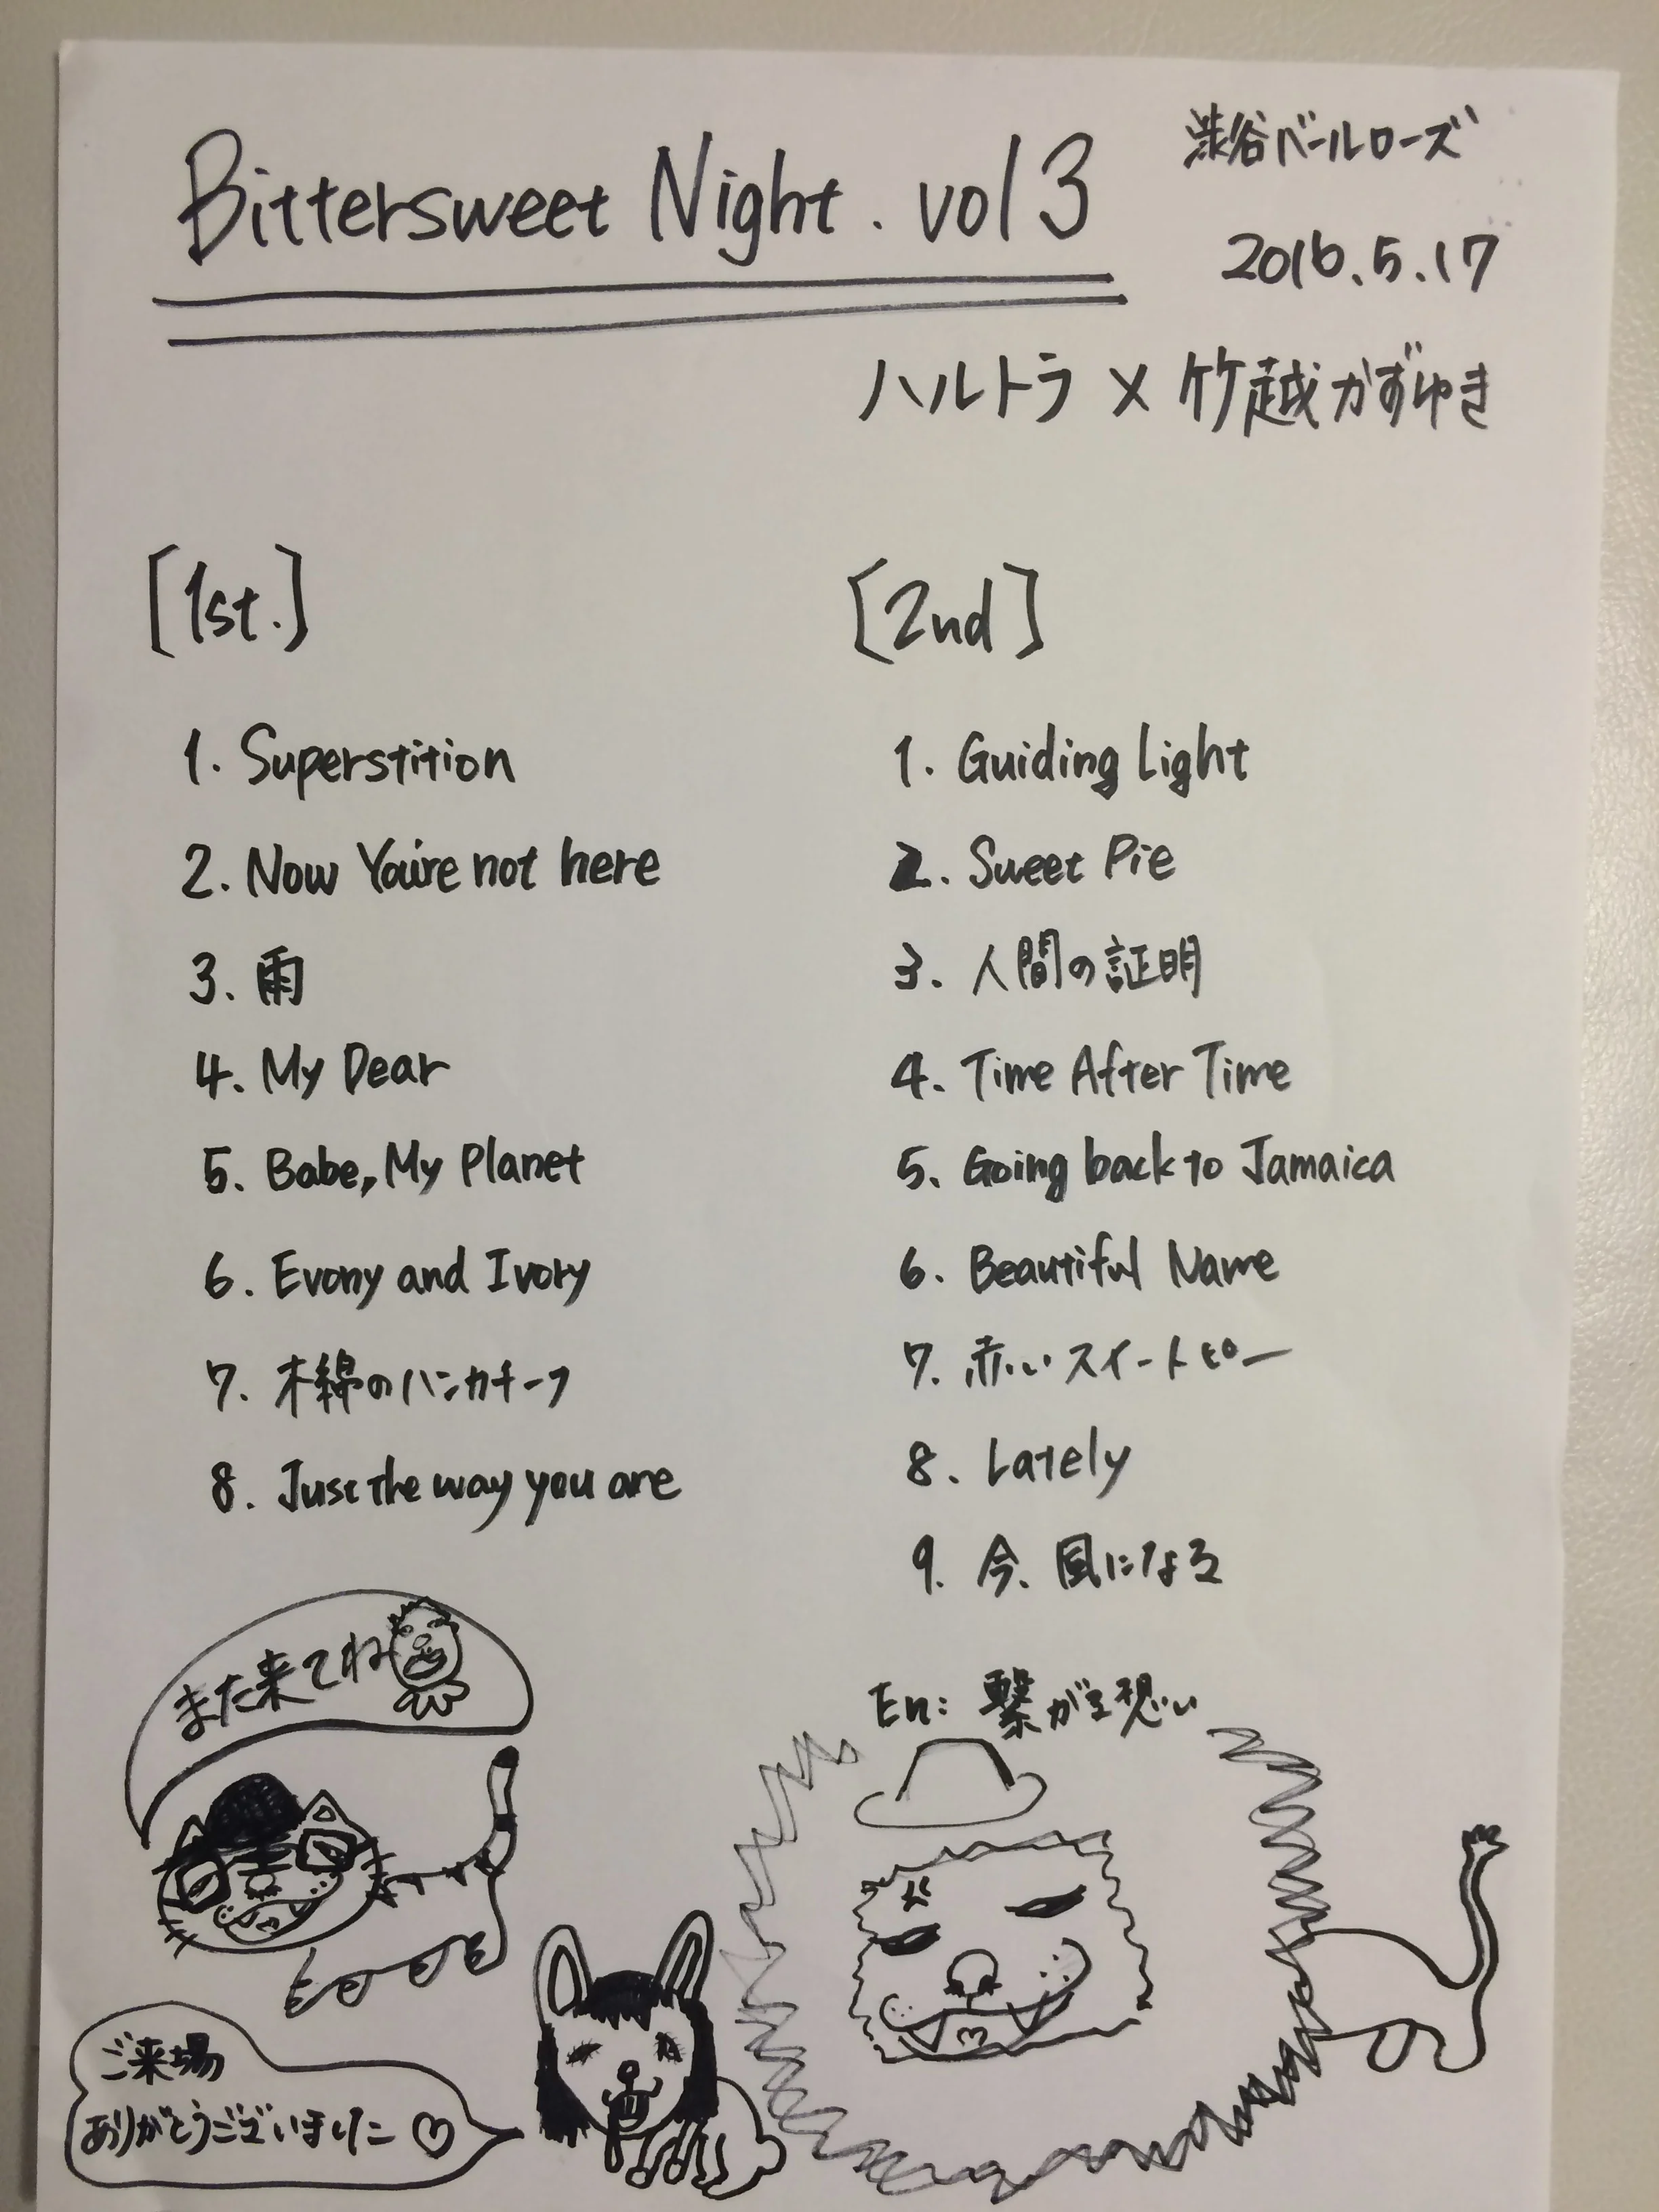 Bittersweet Night. vol 3
渋谷ベールローズ
2016.5.17
ハルトラ × 竹越かずゆき
[1st.]
1. Superstition
2. Now You're not here
3. 雨
4. My Dear
5. Babe, My Planet
6. Evony and Ivory
7. 木綿のハンカチーフ
8. Just the way you are
[2nd]
1. Guiding Light
2. Sweet Pie
3. 人間の証明
4. Time After Time
5. Going back to Jamaica
6. Beautiful Name
7. 赤いスイートピー
8. Lately
9. 今、風になる
En: 繋がる想い
また来てね
ご来場
ありがとうございました♡